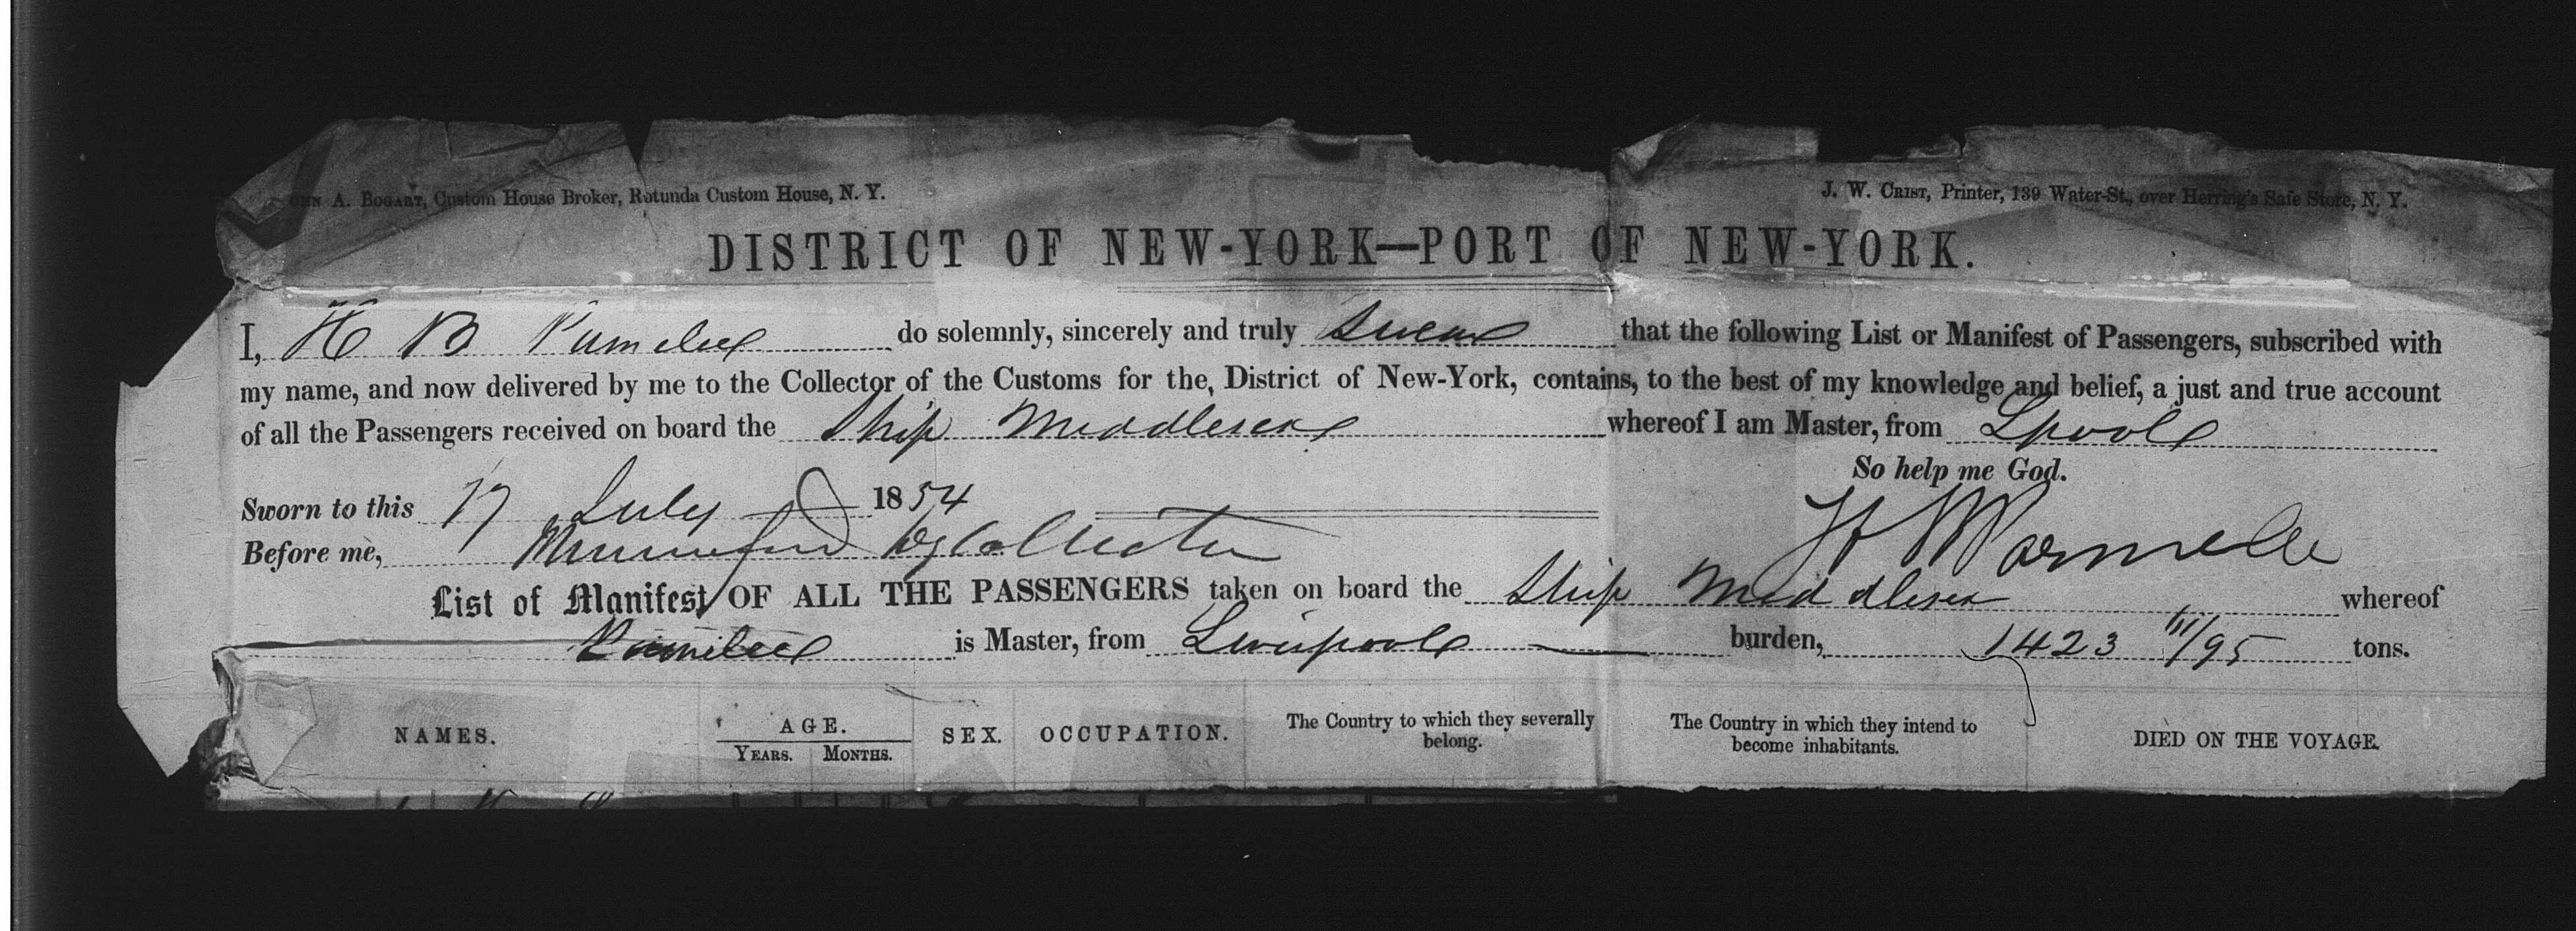 OHN A. BOGART, Custom House Broker, Rotunda Custom House, N. Y.
J. W. CRIST, Printer, 139 Water-St., over Herring's Safe Store, N. Y.
DISTRICT OF NEW-YORK—PORT OF NEW-YORK.
I, H B Parmelee do solemnly, sincerely and truly swear that the following List or Manifest of Passengers, subscribed with
my name, and now delivered by me to the Collector of the Customs for the, District of New-York, contains, to the best of my knowledge and belief, a just and true account
of all the Passengers received on board the Ship Middlesex whereof I am Master, from Lpool
So help me God.
Sworn to this 17 July 1854
Before me, Collector
H B Parmelee
List of Manifest OF ALL THE PASSENGERS taken on board the Ship Middlesex whereof
Parmelee is Master, from Liverpool burden, 1423 /95 tons.
NAMES. AGE. SEX. OCCUPATION. The Country to which they severally belong. The Country in which they intend to become inhabitants. DIED ON THE VOYAGE.
YEARS. MONTHS.